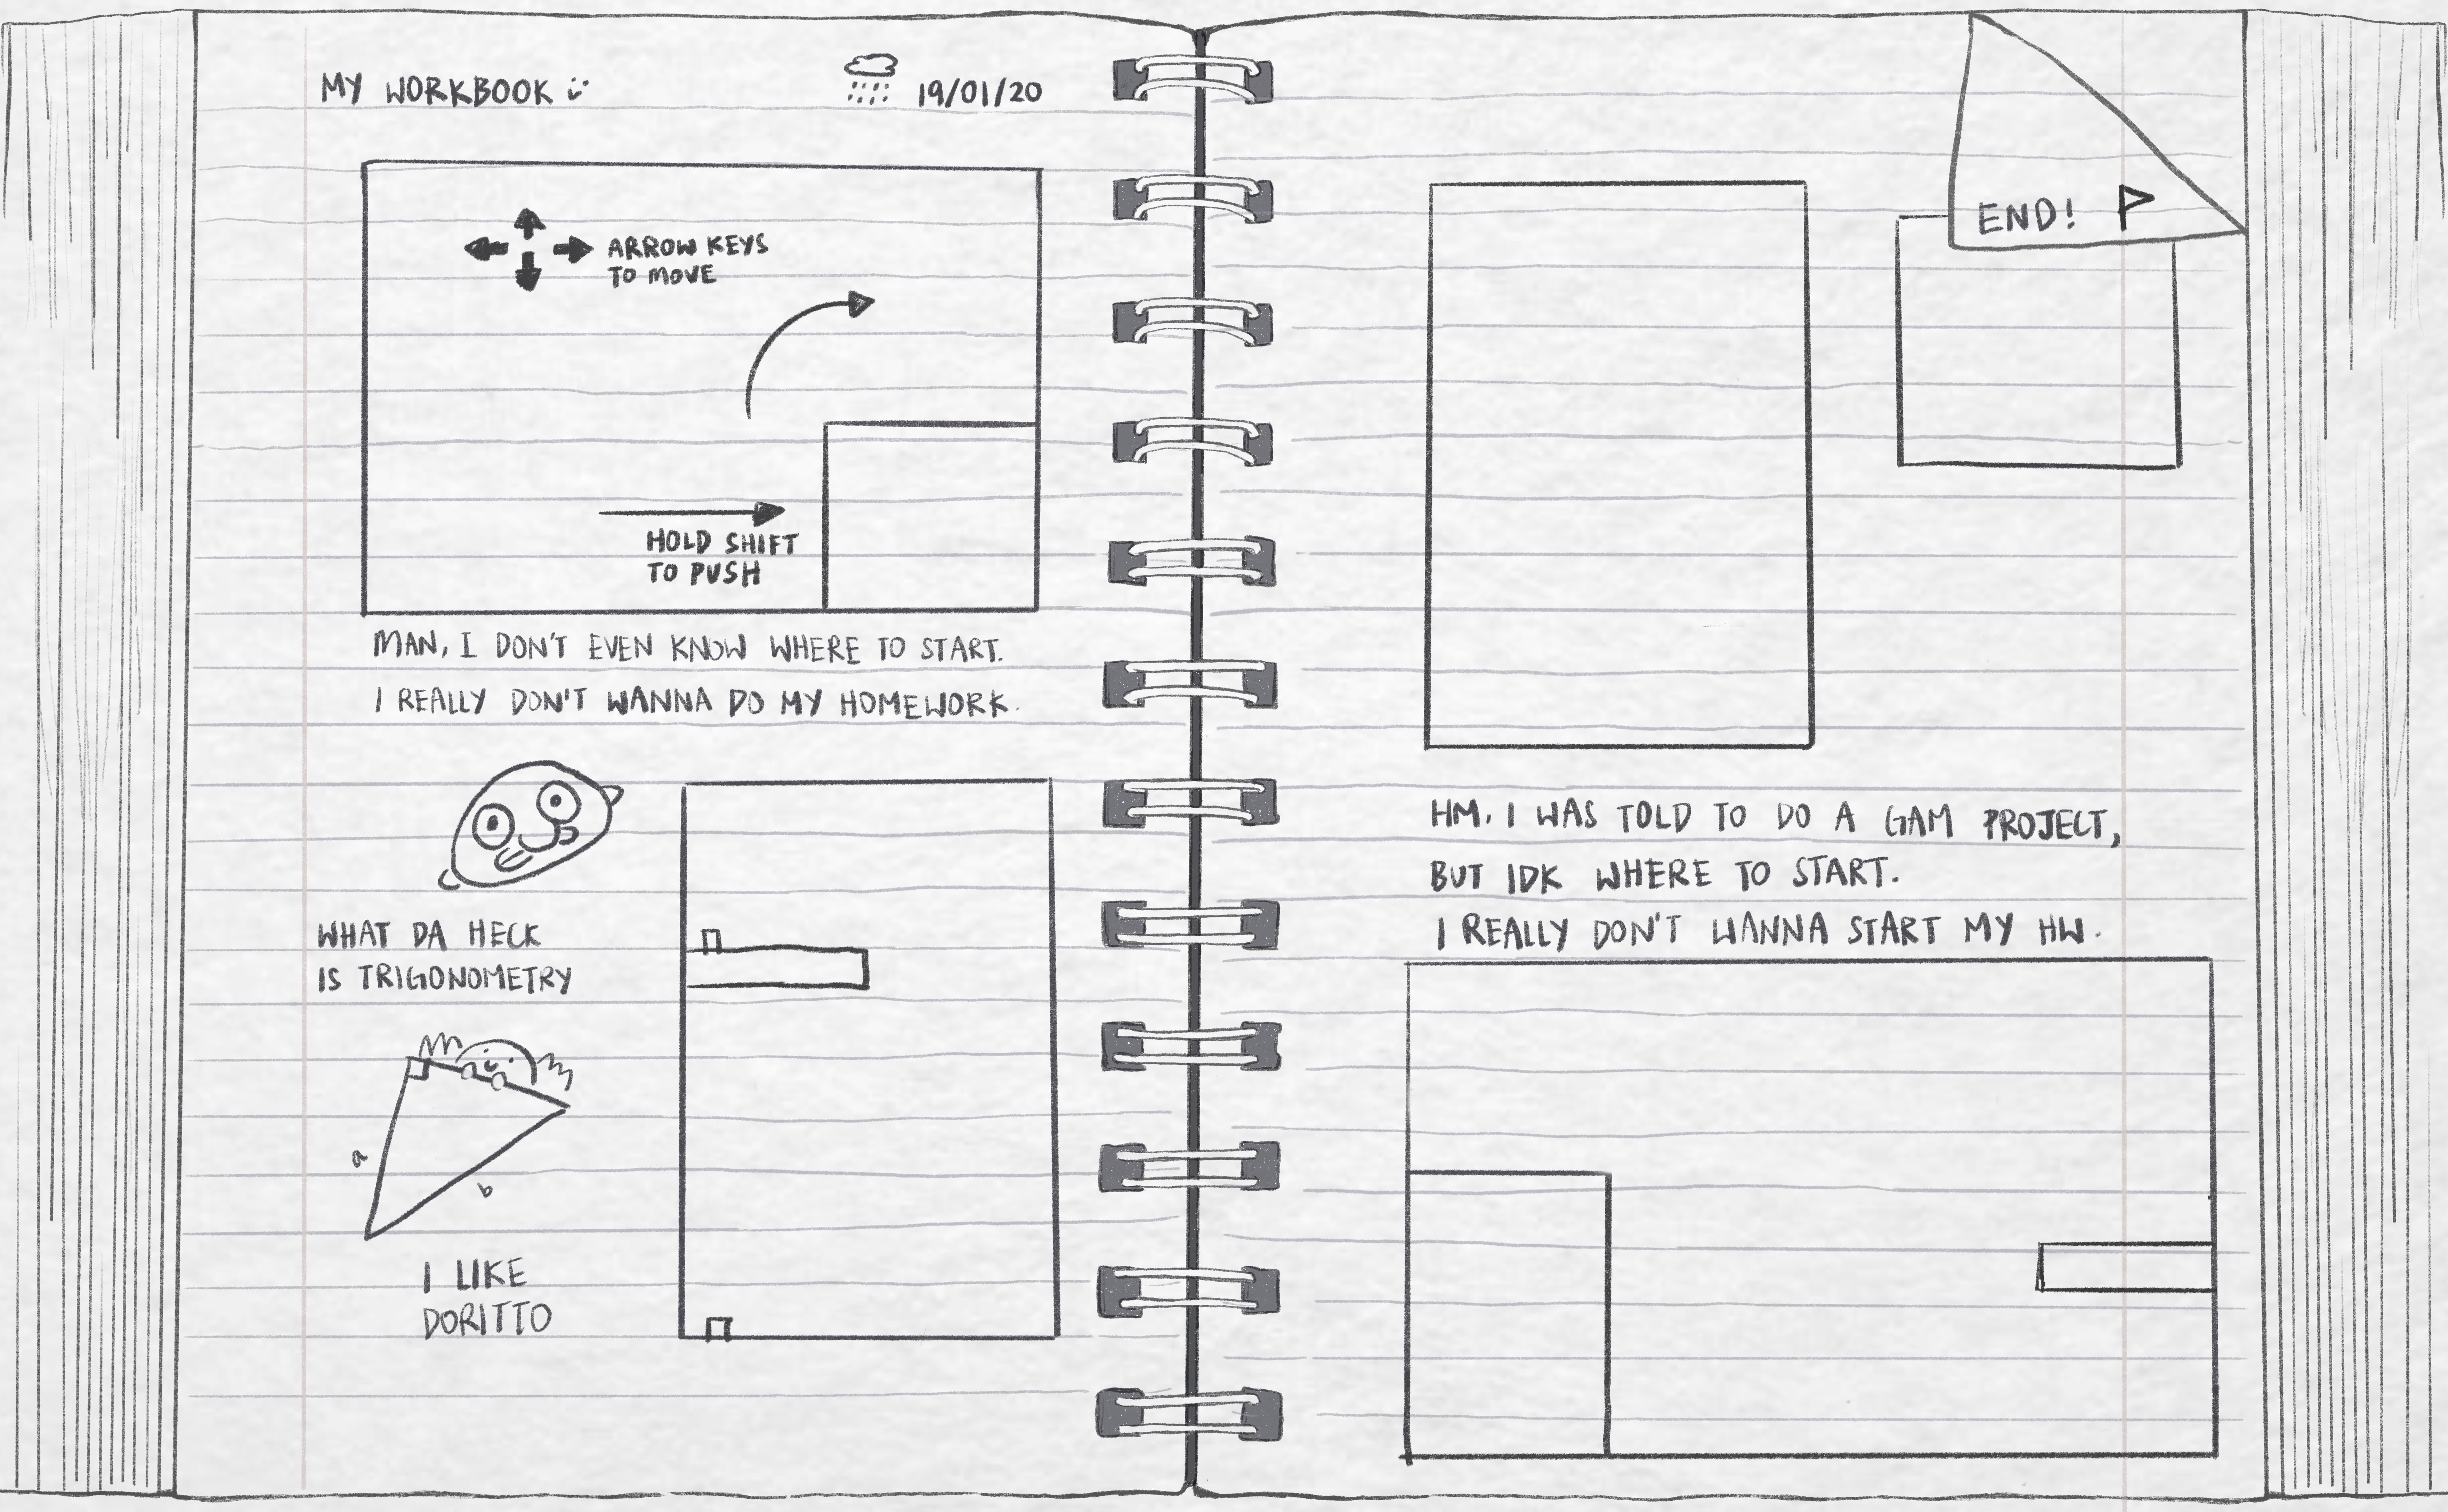 MY WORKBOOK
19/01/20
ARROW KEYS
TO MOVE
HOLD SHIFT
TO PUSH
MAN, I DON'T EVEN KNOW WHERE TO START.
I REALLY DON'T WANNA DO MY HOMEWORK.
WHAT DA HECK
IS TRIGONOMETRY
a
b
I LIKE
DORITTO
END!
HM. I WAS TOLD TO DO A GAM PROJECT,
BUT IDK WHERE TO START.
I REALLY DON'T WANNA START MY HW.